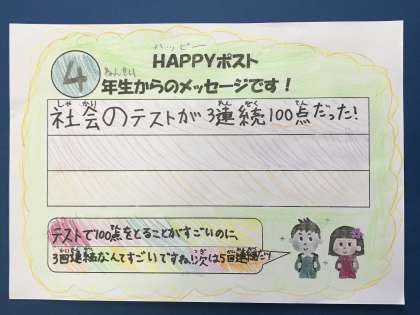 ハッピー
HAPPYポスト
4
ねんせい
年生からのメッセージです！
しゃかい
社会のテストが3連続100点だった!
れんぞく てん
テストで100点をとることがすごいのに、
3回連続なんてすごいですね!次は5回連続だ!